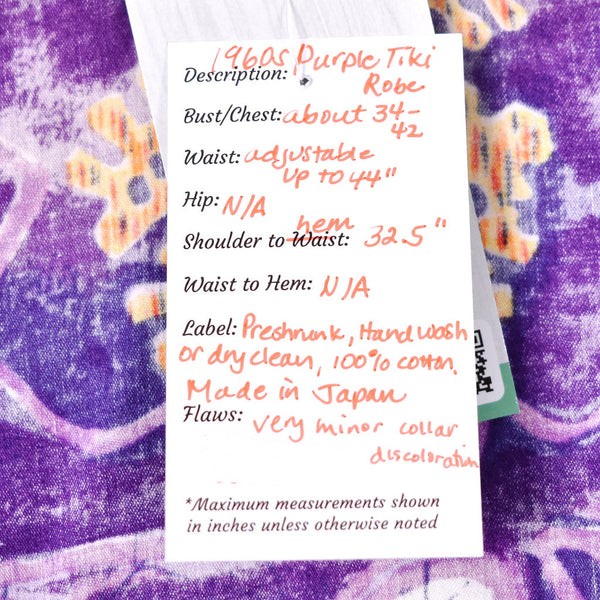 Description: 1960s Purple Tiki
Robe
Bust/Chest: about 34-
42
Waist: adjustable
up to 44"
Hip: N/A
hem
Shoulder to Waist: 32.5"
Waist to Hem: N/A
Label: Preshrunk, Hand wash
or dry clean, 100% cotton.
Made in Japan
Flaws: very minor collar
discoloration
*Maximum measurements shown
in inches unless otherwise noted